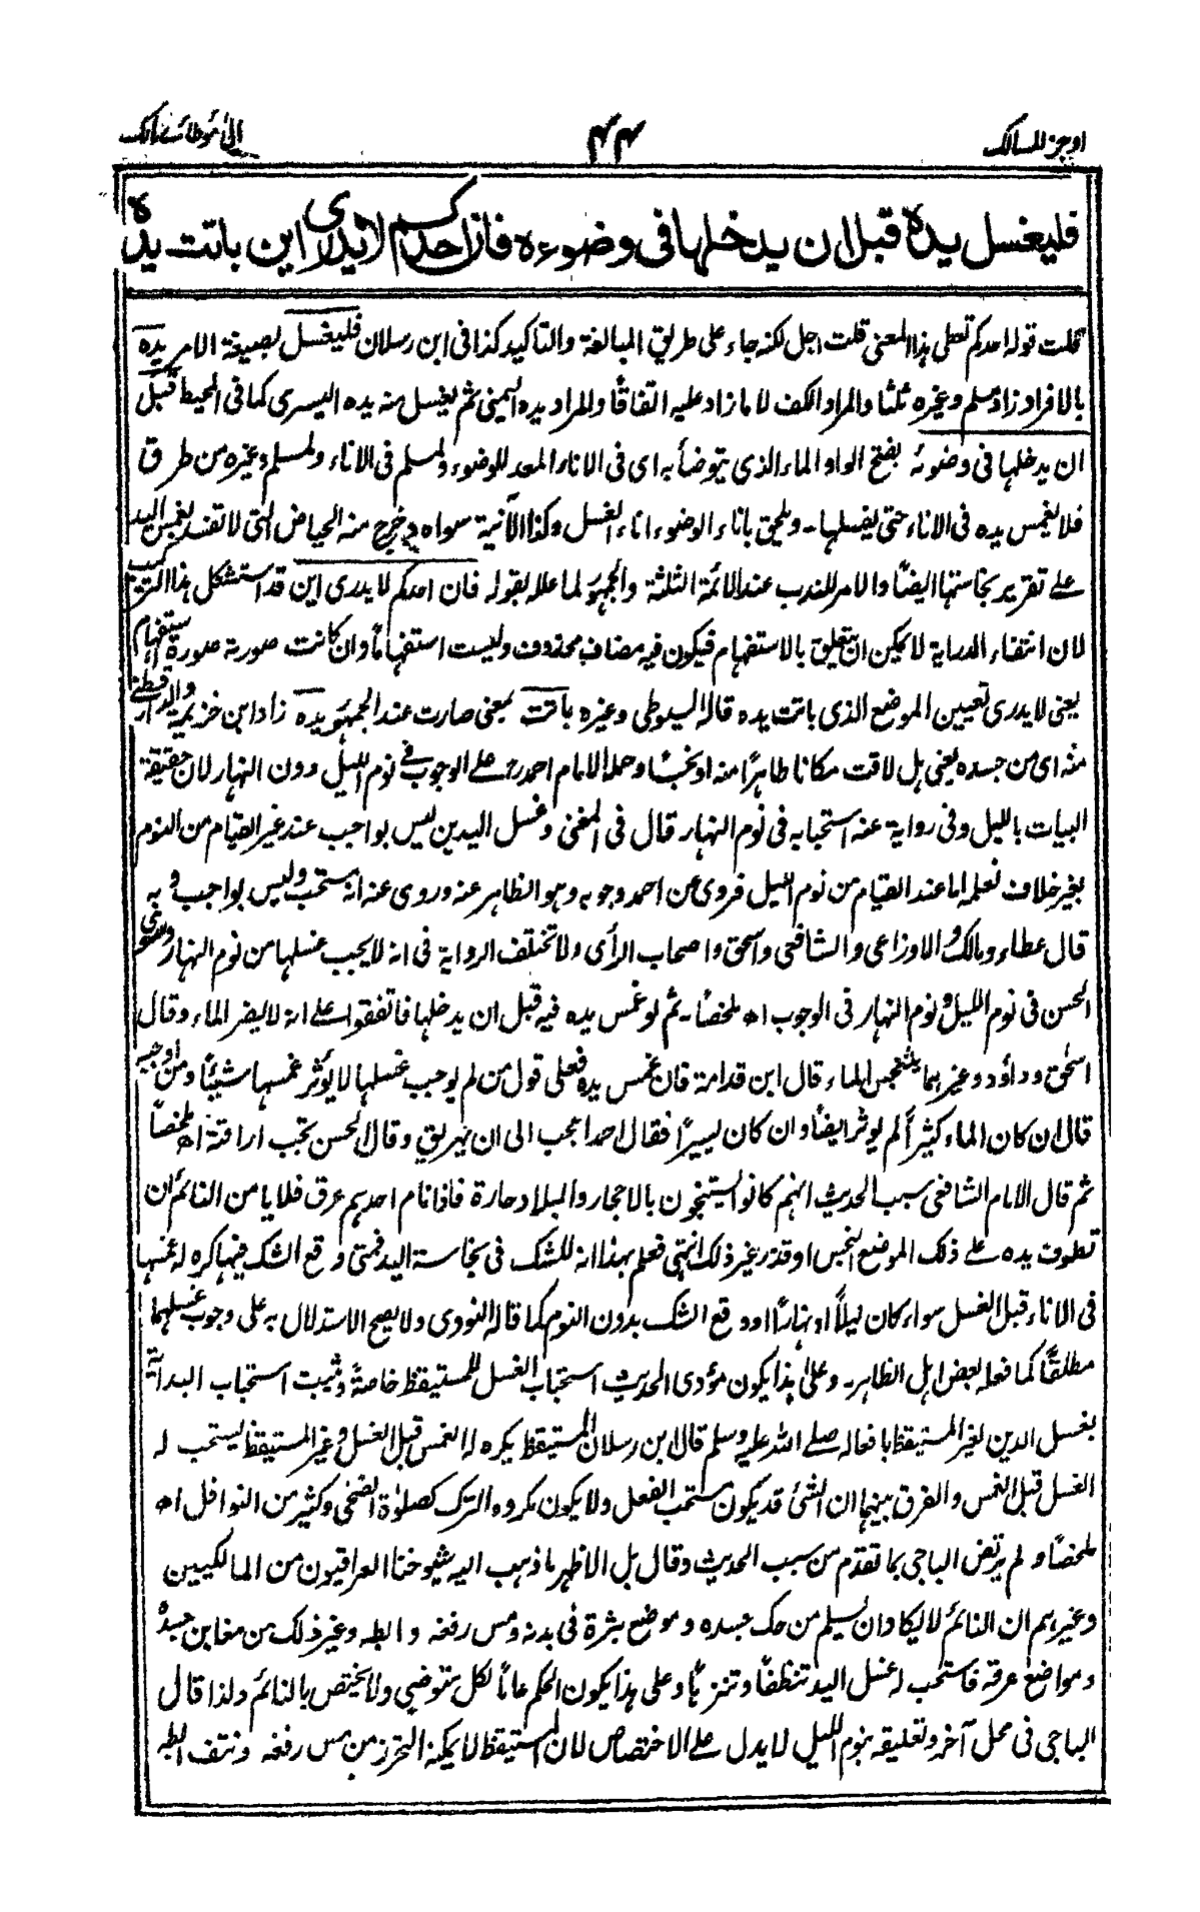 اوجز المسالك ٤٤ الى موطا مالك
فليغسل يده قبل ان يدخلها فى وضوءه فان احدكم لا يدرى اين باتت يده
قلت قوله احدكم تعطى هذا المعنى قلت اجل لكنه جاء على طريق المبالغة والتاكيد كذا فى ابن رسلان فليغسل بصيغة الامر يده
بالافراد زاد مسلم وغيره ثلثا والمراد الكف لا ما زاد عليه اتفاقاً والمراد يده اليمنى ثم يغسل منه يده اليسرى كما فى المحيط قبل
ان يدخلها فى وضوئه بفتح الواو الماء الذى يتوضأ به اى فى الاناء المعد للوضوء ولمسلم فى الاناء ولمسلم وغيره من طرق
فلا يغمس يده فى الاناء حتى يغسلها۔ ويلحق باناء الوضوء اناء الغسل وكذا الآنية سواه وخرج منه الحياض التى لا تفسد بغمس اليد
على تقرير نجاستها ايضاً والامر للندب عند الائمة الثلثة والجمهور لما علله بقوله فان احدكم لا يدرى اين قد استشكل هذا التركيب
لان انتفاء الدراية لا يمكن ان يتعلق بالاستفهام فيكون فيه مضاف محذوف وليست استفهاماً وان كانت صورته صورة استفهام
يعنى لا يدرى تعيين الموضع الذى باتت يده قاله السيوطى وغيره باتت بمعنى صارت عند الجمهور يده زاد ابن خزيمة والدارقطنى
منه اى من جسده يعنى هل لاقت مكانا طاهراً منه او نجساً وحمله الامام احمد رح على الوجوب فى نوم الليل دون النهار لان حقيقة
البيات بالليل وفى رواية عنه استحبابه فى نوم النهار قال فى المغنى وغسل اليدين ليس بواجب عند غير القيام من النوم
بغير خلاف نعلمه اما عند القيام من نوم الليل فروى عن احمد وجوبه وهو الظاهر عنه وروى عنه انه مستحب وليس بواجب وبه
قال عطاء ومالك والاوزاعى والشافعى واسحق واصحاب الرأى ولا تختلف الرواية فى انه لا يجب غسلها من نوم النهار وسوى
الحسن فى نوم الليل ونوم النهار فى الوجوب اھ ملخصاً۔ ثم لو غمس يده فيه قبل ان يدخلها فاتفقوا على انه لا يضر الماء وقال
اسحق وداؤد وغيرهما يتنجس الماء قال ابن قدامة فان غمس يده فعلى قول من لم يوجب غسلها لا يؤثر غمسها شيئاً ومن اوجبه
قال ان كان الماء كثيراً لم يوثر ايضاً وان كان يسيراً فقال احمد اعجب الى ان يهريق وقال الحسن تجب اراقته اھ ملخصاً
ثم قال الامام الشافعى سبب الحديث انهم كانوا يستنجون بالاحجار والبلاد حارة فاذا نام احدهم عرق فلا يامن النائم ان
تطوف يده على ذلك الموضع النجس او قذر غير ذلك انتهى فعلم بهذا انه للشك فى نجاسة اليد فمتى وقع الشك فيها كره له غمسها
فى الاناء قبل الغسل سواء كان ليلاً او نهاراً او وقع الشك بدون النوم كما قاله النووى ولا يصح الاستدلال به على وجوب غسلهما
مطلقاً كما فعله بعض اهل الظاهر۔ وعلى هذا يكون مؤدى الحديث استحباب الغسل للمستيقظ خاصةً وثبت استحباب البداءة
بغسل اليدين لغير المستيقظ بافعاله صلى الله عليه وسلم قال ابن رسلان المستيقظ يكره له الغمس قبل الغسل وغير المستيقظ يستحب له
الغسل قبل الغمس والفرق بينهما ان الشئ قد يكون مستحب الفعل ولا يكون مكروه الترك كصلوٰة الضحى وكثير من النوافل اھ
ملخصاً ولم يرتض الباجى بما تقدم من سبب الحديث وقال بل الاظهر ما ذهب اليه شيوخنا العراقيون من المالكيين
وغيرهم ان النائم لا يكاد ان يسلم من حك جسده وموضع بثرة فى بدنه ومس رفغه وابطه وغير ذلك من مغابن جسده
ومواضع عرقه فاستحب له غسل اليد تنظفاً وتنزهاً وعلى هذا يكون الحكم عاماً لكل متوضى ولا يختص بالنائم ولذا قال
الباجى فى محل آخر وتعليقه بنوم الليل لا يدل على الاختصاص لان المستيقظ لا يمكنه التحرز من مس رفغه ونتف ابطه